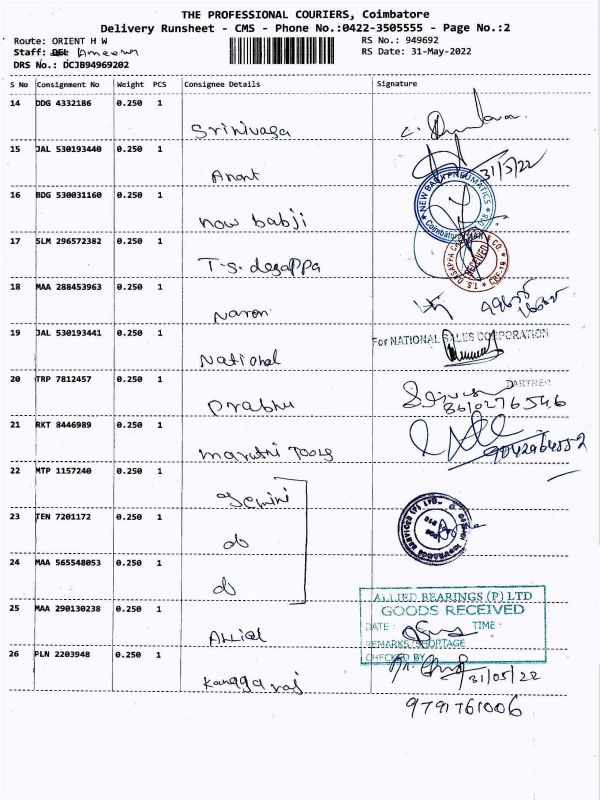 THE PROFESSIONAL COURIERS, Coimbatore
Delivery Runsheet - CMS - Phone No.:0422-3505555 - Page No.:2
Route: ORIENT H W RS No.: 949692
Staff: Ameen RS Date: 31-May-2022
DRS No.: DCJB94969202
S No Consignment No Weight PCS Consignee Details Signature
14 DDG 4332186 0.250 1
Srinivasa
15 JAL 530193440 0.250 1
Anant 31/5/22
16 BDG 530031160 0.250 1
NEW BABJI PNEUMATICS
now babji Coimbatore
17 SLM 296572382 0.250 1
DASAPPA & CO. RECEIVED T.S. CBE-18
T-S. desappa
18 MAA 288453963 0.250 1
Naren
19 JAL 530193441 0.250 1 For NATIONAL SALES CORPORATION
National
20 TRP 7812457 0.250 1 PARTNER
Prabhu 8610276546
21 RKT 8446989 0.250 1
Maruthi Tools 9042964552
22 MTP 1157240 0.250 1
Gemini
23 TEN 7201172 0.250 1
do
24 MAA 565548053 0.250 1
do
ALLIED BEARINGS (P) LTD
25 MAA 290130238 0.250 1 GOODS RECEIVED
DATE : TIME :
Allied
REMARKS / SHORTAGE
26 PLN 2203948 0.250 1 CHECKED BY
Kanagaraj 31/05/22
9791761006